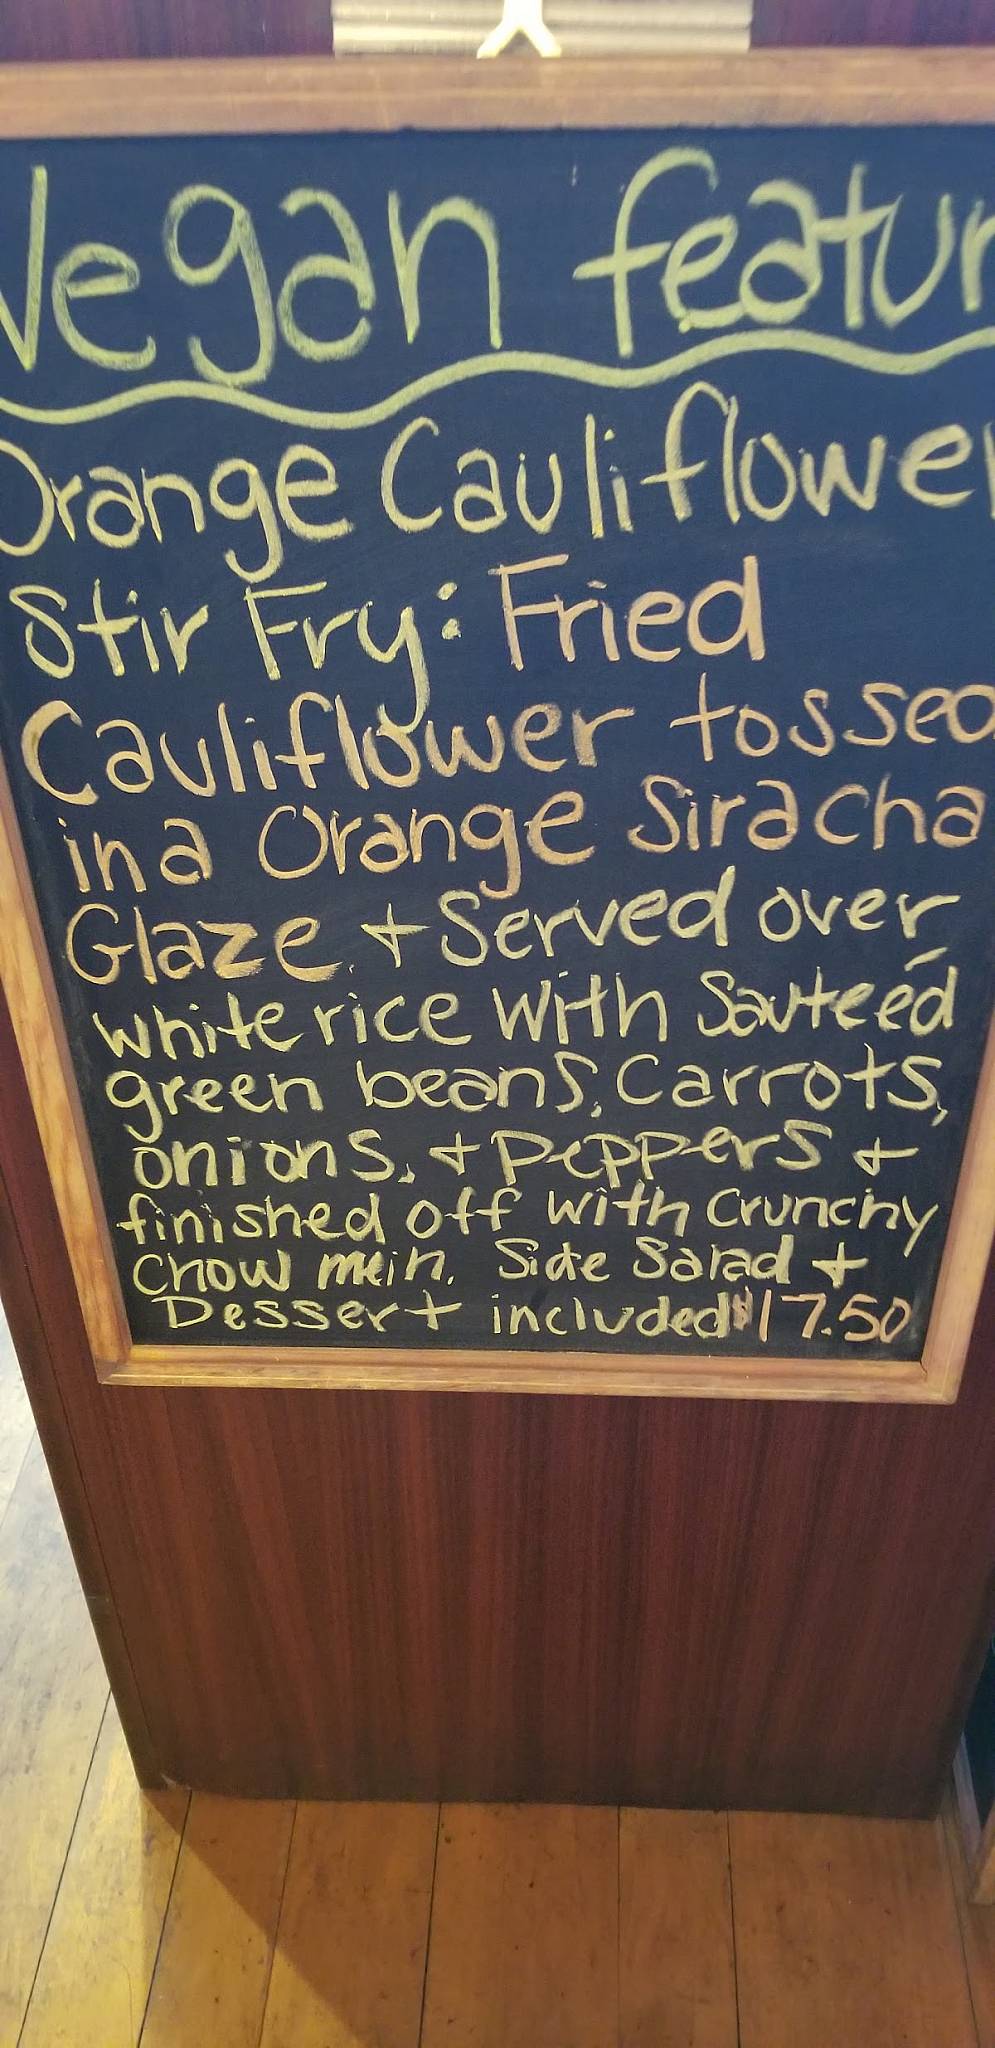 Vegan featur
Orange Cauliflower
Stir Fry: Fried
Cauliflower tossed
in a Orange Siracha
Glaze. + Served over
white rice with Sauteéd
green beans, Carrots,
onions, + Peppers +
finished off with Crunchy
Chow mein. Side Salad +
Dessert included $17.50